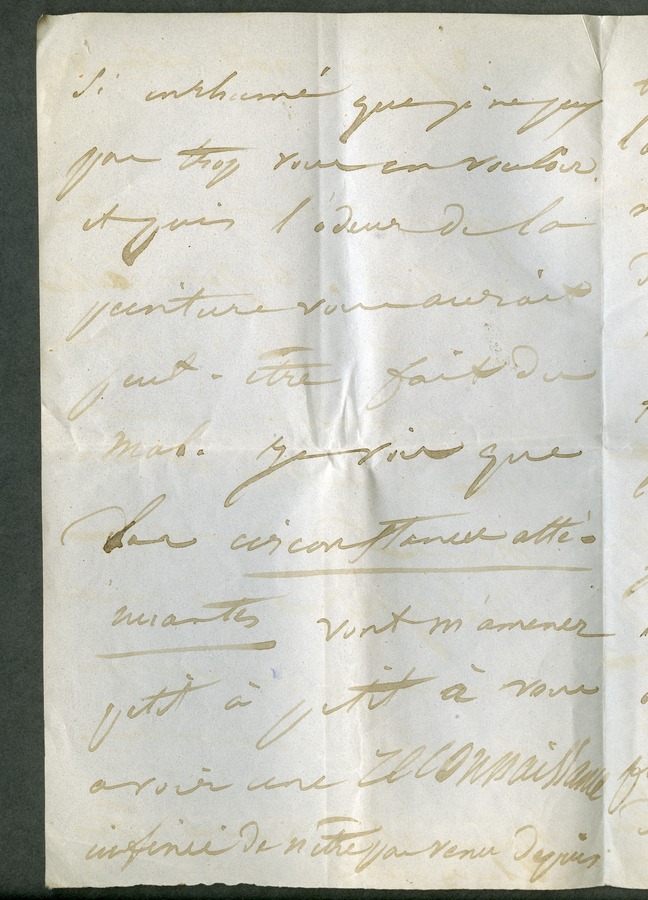 si enrhumé que je ne puis
pas trop vous en vouloir.
et puis l'odeur de la
peinture vous aurait
peut-être fait du
mal. je vois que
les circonstances atté-
nuantes vont m'amener
petit à petit à vous
avoir une reconnaissance
infinie de n'être pas venu depuis